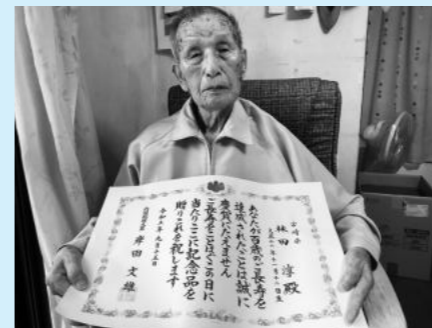 林田 淳 殿
あなたが百歳のご長寿を
達成されたことは誠に
慶賀にたえません
ご長寿をことほぐこの日に
当たりここに記念品を
贈りこれを祝します
年九月十五日
内閣総理大臣 岸田 文雄